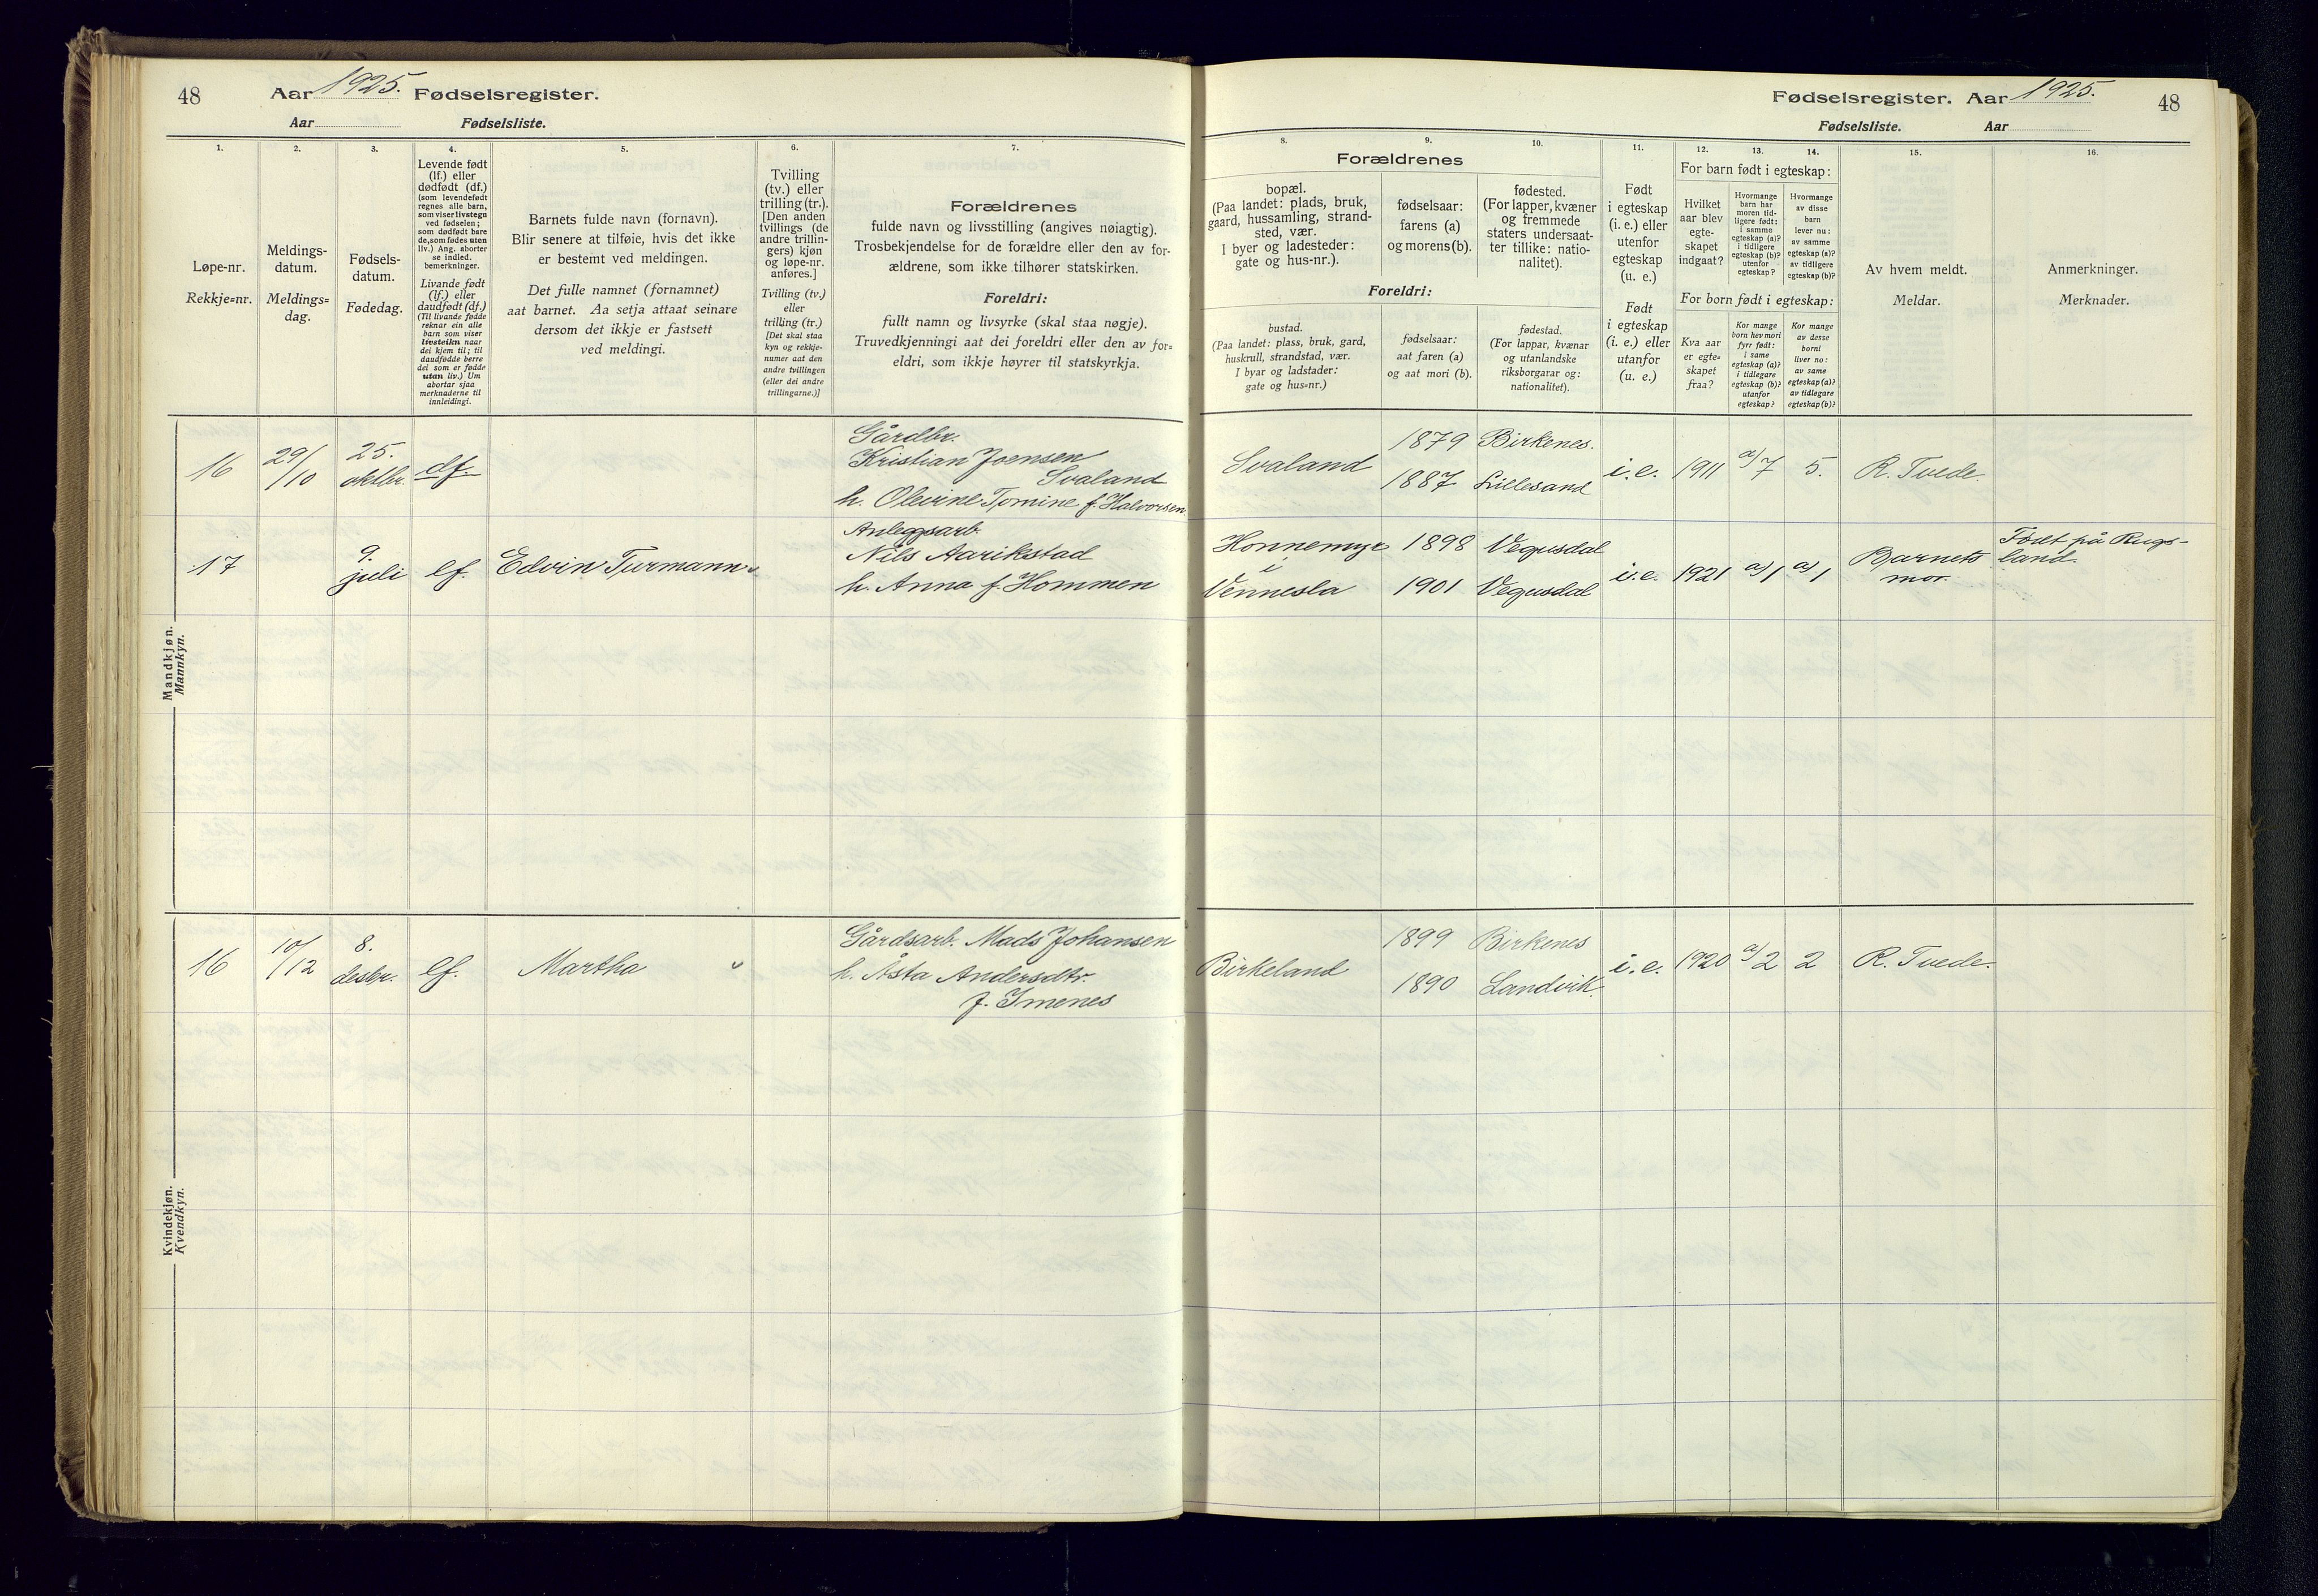 48
Aar 1925. Fødselsregister.
Aar Fødselsliste.
1.
Løpe-nr.
Rekkje=nr.
2.
Meldings-
datum.
Meldings=
dag.
3.
Fødsels-
datum.
Fødedag.
4.
Levende født
(lf.) eller
dødfødt (df.)
(som levendefødt
regnes alle barn,
som viser livstegn
ved fødselen;
som dødfødt bare
de, som fødes uten
liv.) Ang. aborter
se indled.
bemerkninger.
Livande født
(lf.) eller
daudfødt (df.)
(Til livande fødde
reknar ein alle
barn som viser
livsteikn naar
dei kjem til; til
daudfødde berre
dei som er fødde
utan liv.) Um
abortar sjaa
merknaderne til
innleidingi.
5.
Barnets fulde navn (fornavn).
Blir senere at tilføie, hvis det ikke
er bestemt ved meldingen.
Det fulle namnet (fornamnet)
aat barnet. Aa setja attaat seinare
dersom det ikkje er fastsett
ved meldingi.
6.
Tvilling
(tv.) eller
trilling (tr.).
[Den anden
tvillings (de
andre trillin-
gers) kjøn
og løpe-nr.
anføres.]
Tvilling (tv.)
eller
trilling (tr.)
[Det skal staa
kyn og rekkje-
numer aat den
andre tvillingen
(eller dei andre
trillingarne.)]
7.
Forældrenes
fulde navn og livsstilling (angives nøiagtig).
Trosbekjendelse for de forældre eller den av for-
ældrene, som ikke tilhører statskirken.
Foreldri:
fullt namn og livsyrke (skal staa nøgje).
Truvedkjenningi aat dei foreldri eller den av for=
eldri, som ikkje høyrer til statskyrkja.
Mandkjøn.
Mannkyn.
16
29/10
25.
oktbr.
df.
Gårdbr.
Kristian Joensen
Svaland
h. Olevine Tomine f. Halvorsen
17
9.
juli
lf.
Edvin Turmann
Anleggsarb.
Nils Aarikstad
h. Anna f. Hommen
Kvindekjøn.
Kvendkyn.
16
10/12
8.
desbr.
lf.
Martha
Gårdsarb. Mads Johansen
h. Åsta Andersdtr.
f. Imenes
Fødselsregister. Aar 1925.
48
Fødselsliste. Aar
8.
9.
10.
Forældrenes
bopæl.
(Paa landet: plads, bruk,
gaard, hussamling, strand-
sted, vær.
I byer og ladesteder:
gate og hus-nr.).
fødselsaar:
farens (a)
og morens (b).
fødested.
(For lapper, kvæner
og fremmede
staters undersaat-
ter tillike: natio-
nalitet).
Foreldri:
bustad.
(Paa landet: plass, bruk, gard,
huskrull, strandstad, vær.
I byar og ladstader:
gate og hus=nr.)
fødselsaar:
aat faren (a)
og aat mori (b).
fødestad.
(For lappar, kvænar
og utanlandske
riksborgarar og:
nationalitet).
11.
Født
i egteskap
(i. e.) eller
utenfor
egteskap
(u. e.)
Født
i egteskap
(i. e.) eller
utanfor
(u. e.)
12.
13.
14.
For barn født i egteskap:
Hvilket
aar blev
egte-
skapet
indgaat?
Hvormange
barn har
moren tid-
ligere født:
i samme
egteskap (a)?
i tidligere
egteskap (b)?
utenfor
egteskap?
Hvormange
av disse
barn
lever nu:
av samme
egteskap (a)?
av tidligere
egteskap (b)?
For born født i egteskap:
Kva aar
er egte=
skapet
fraa?
Kor mange
born hev mori
fyrr født:
i same
egteskap (a)?
i tidlegare
egteskap (b)?
utanfor
egteskap?
Kor mange
av desse
borni
liver no:
av same
egteskap (a)?
av tidlegare
egteskap (b)?
15.
Av hvem meldt.
Meldar.
16.
Anmerkninger.
Merknader.
Svaland
1879 Birkenes.
1887 Lillesand
i.e.
1911
a) 7
5.
R. Tvede.
Honnemyr
i
Vennesla
1898 Vegusdal
1901 Vegusdal
i.e.
1921
a) 1
a) 1
Barnets
mor.
Født på Rugs-
land.
Birkeland
1899 Birkenes
1890 Landvik.
i.e.
1920
a) 2
2
R. Tvede.